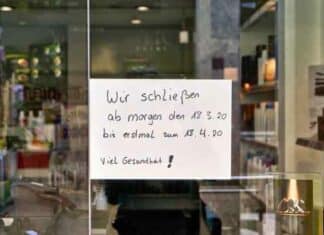 Wir schließen
ab morgen den 18.3.20
bis erstmal zum 18.4.20
Viel Gesundheit!